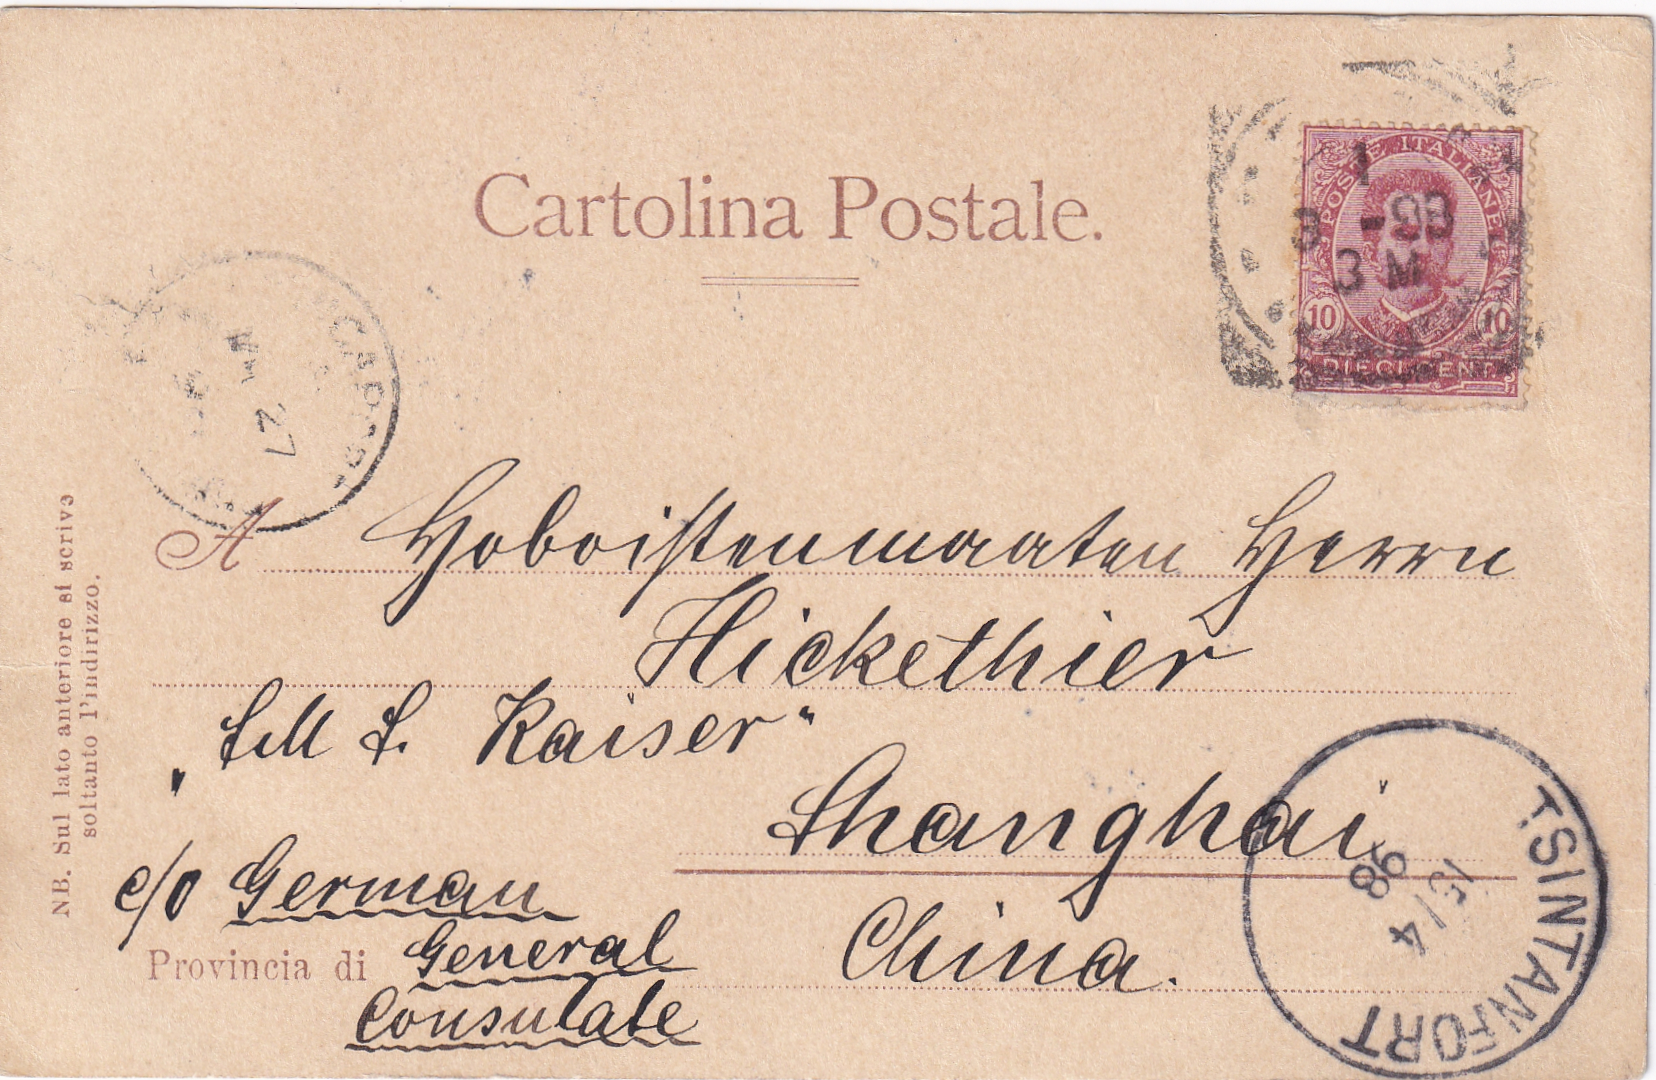 Cartolina Postale.
POSTE ITALIANE
1
3 - 98
3 M
10 10
27
A Hoboistenmaaten Herrn
Hickethier
„S.M.S. Kaiser“
Shanghai
c/o German
General
Consulate
China.
Provincia di
NB. Sul lato anteriore si scrive
soltanto l'indirizzo.
TSINTANFORT
15/4
98